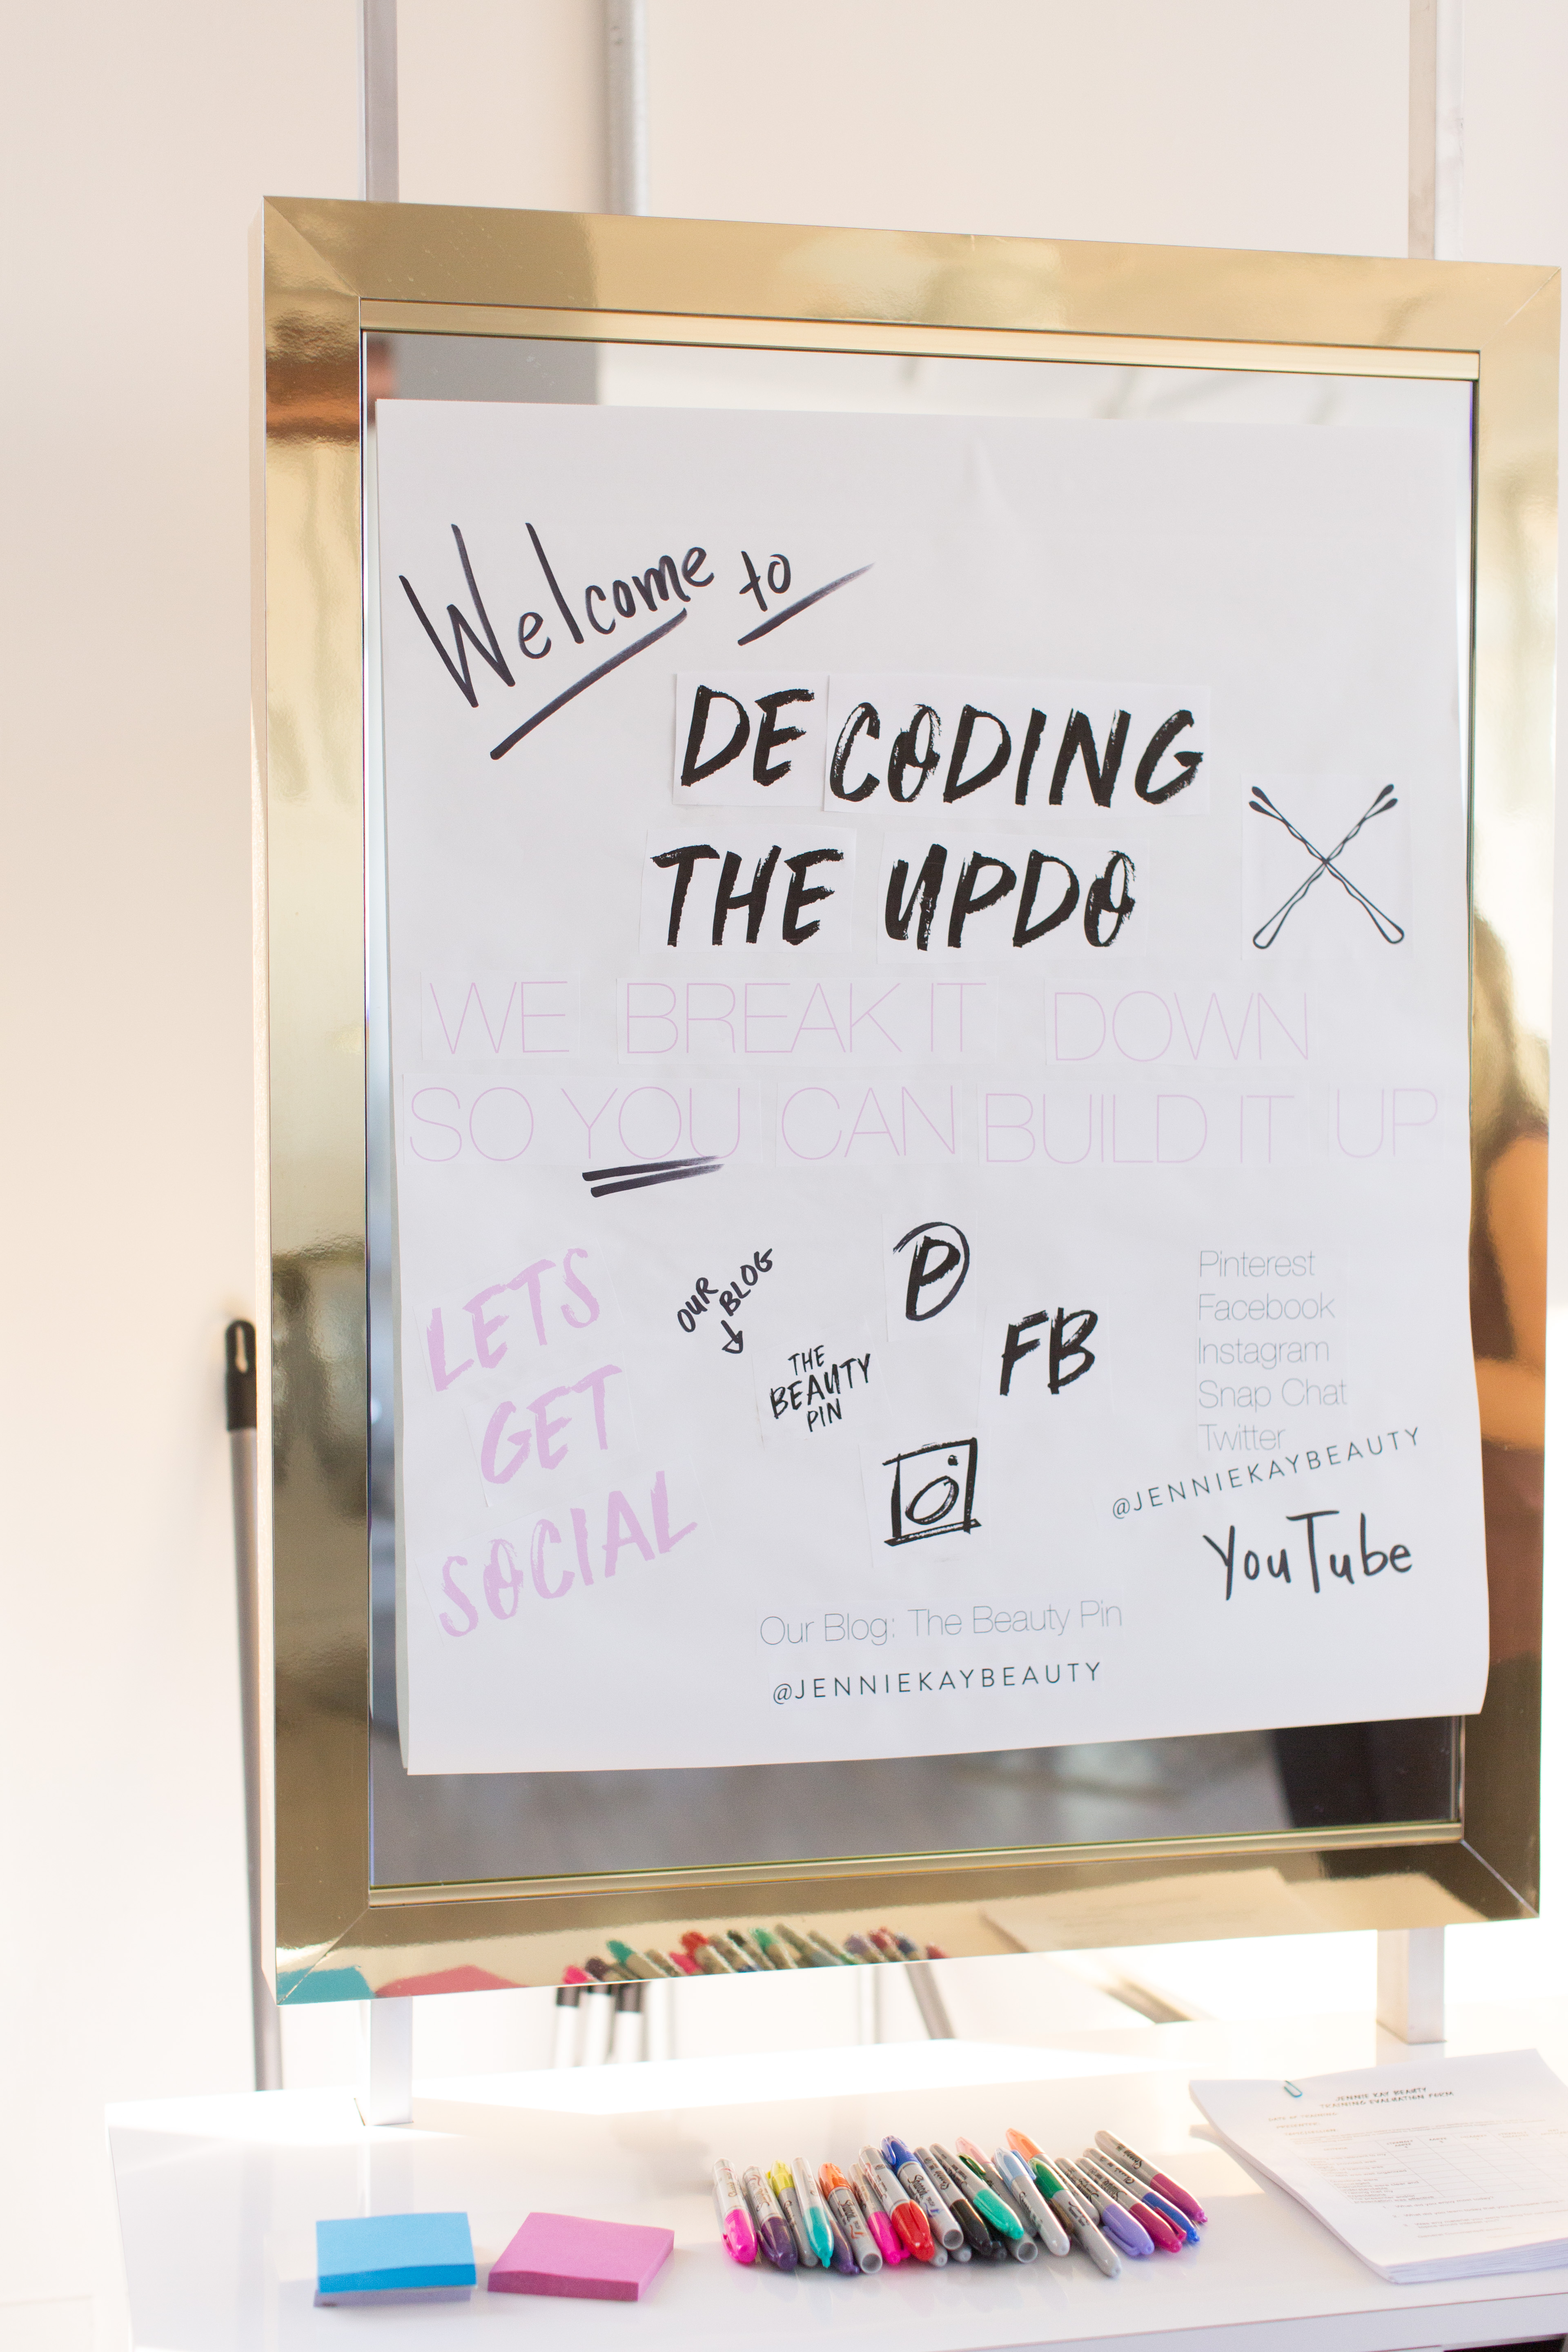 Welcome to
DECODING
THE UPDO
WE BREAK IT DOWN
SO YOU CAN BUILD IT UP
LETS
GET
SOCIAL
OUR
BLOG
THE
BEAUTY
PIN
P
FB
Pinterest
Facebook
Instagram
Snap Chat
Twitter
@JENNIEKAYBEAUTY
YouTube
Our Blog: The Beauty Pin
@JENNIEKAYBEAUTY
JENNIE KAY BEAUTY
TRAINING EVALUATION FORM